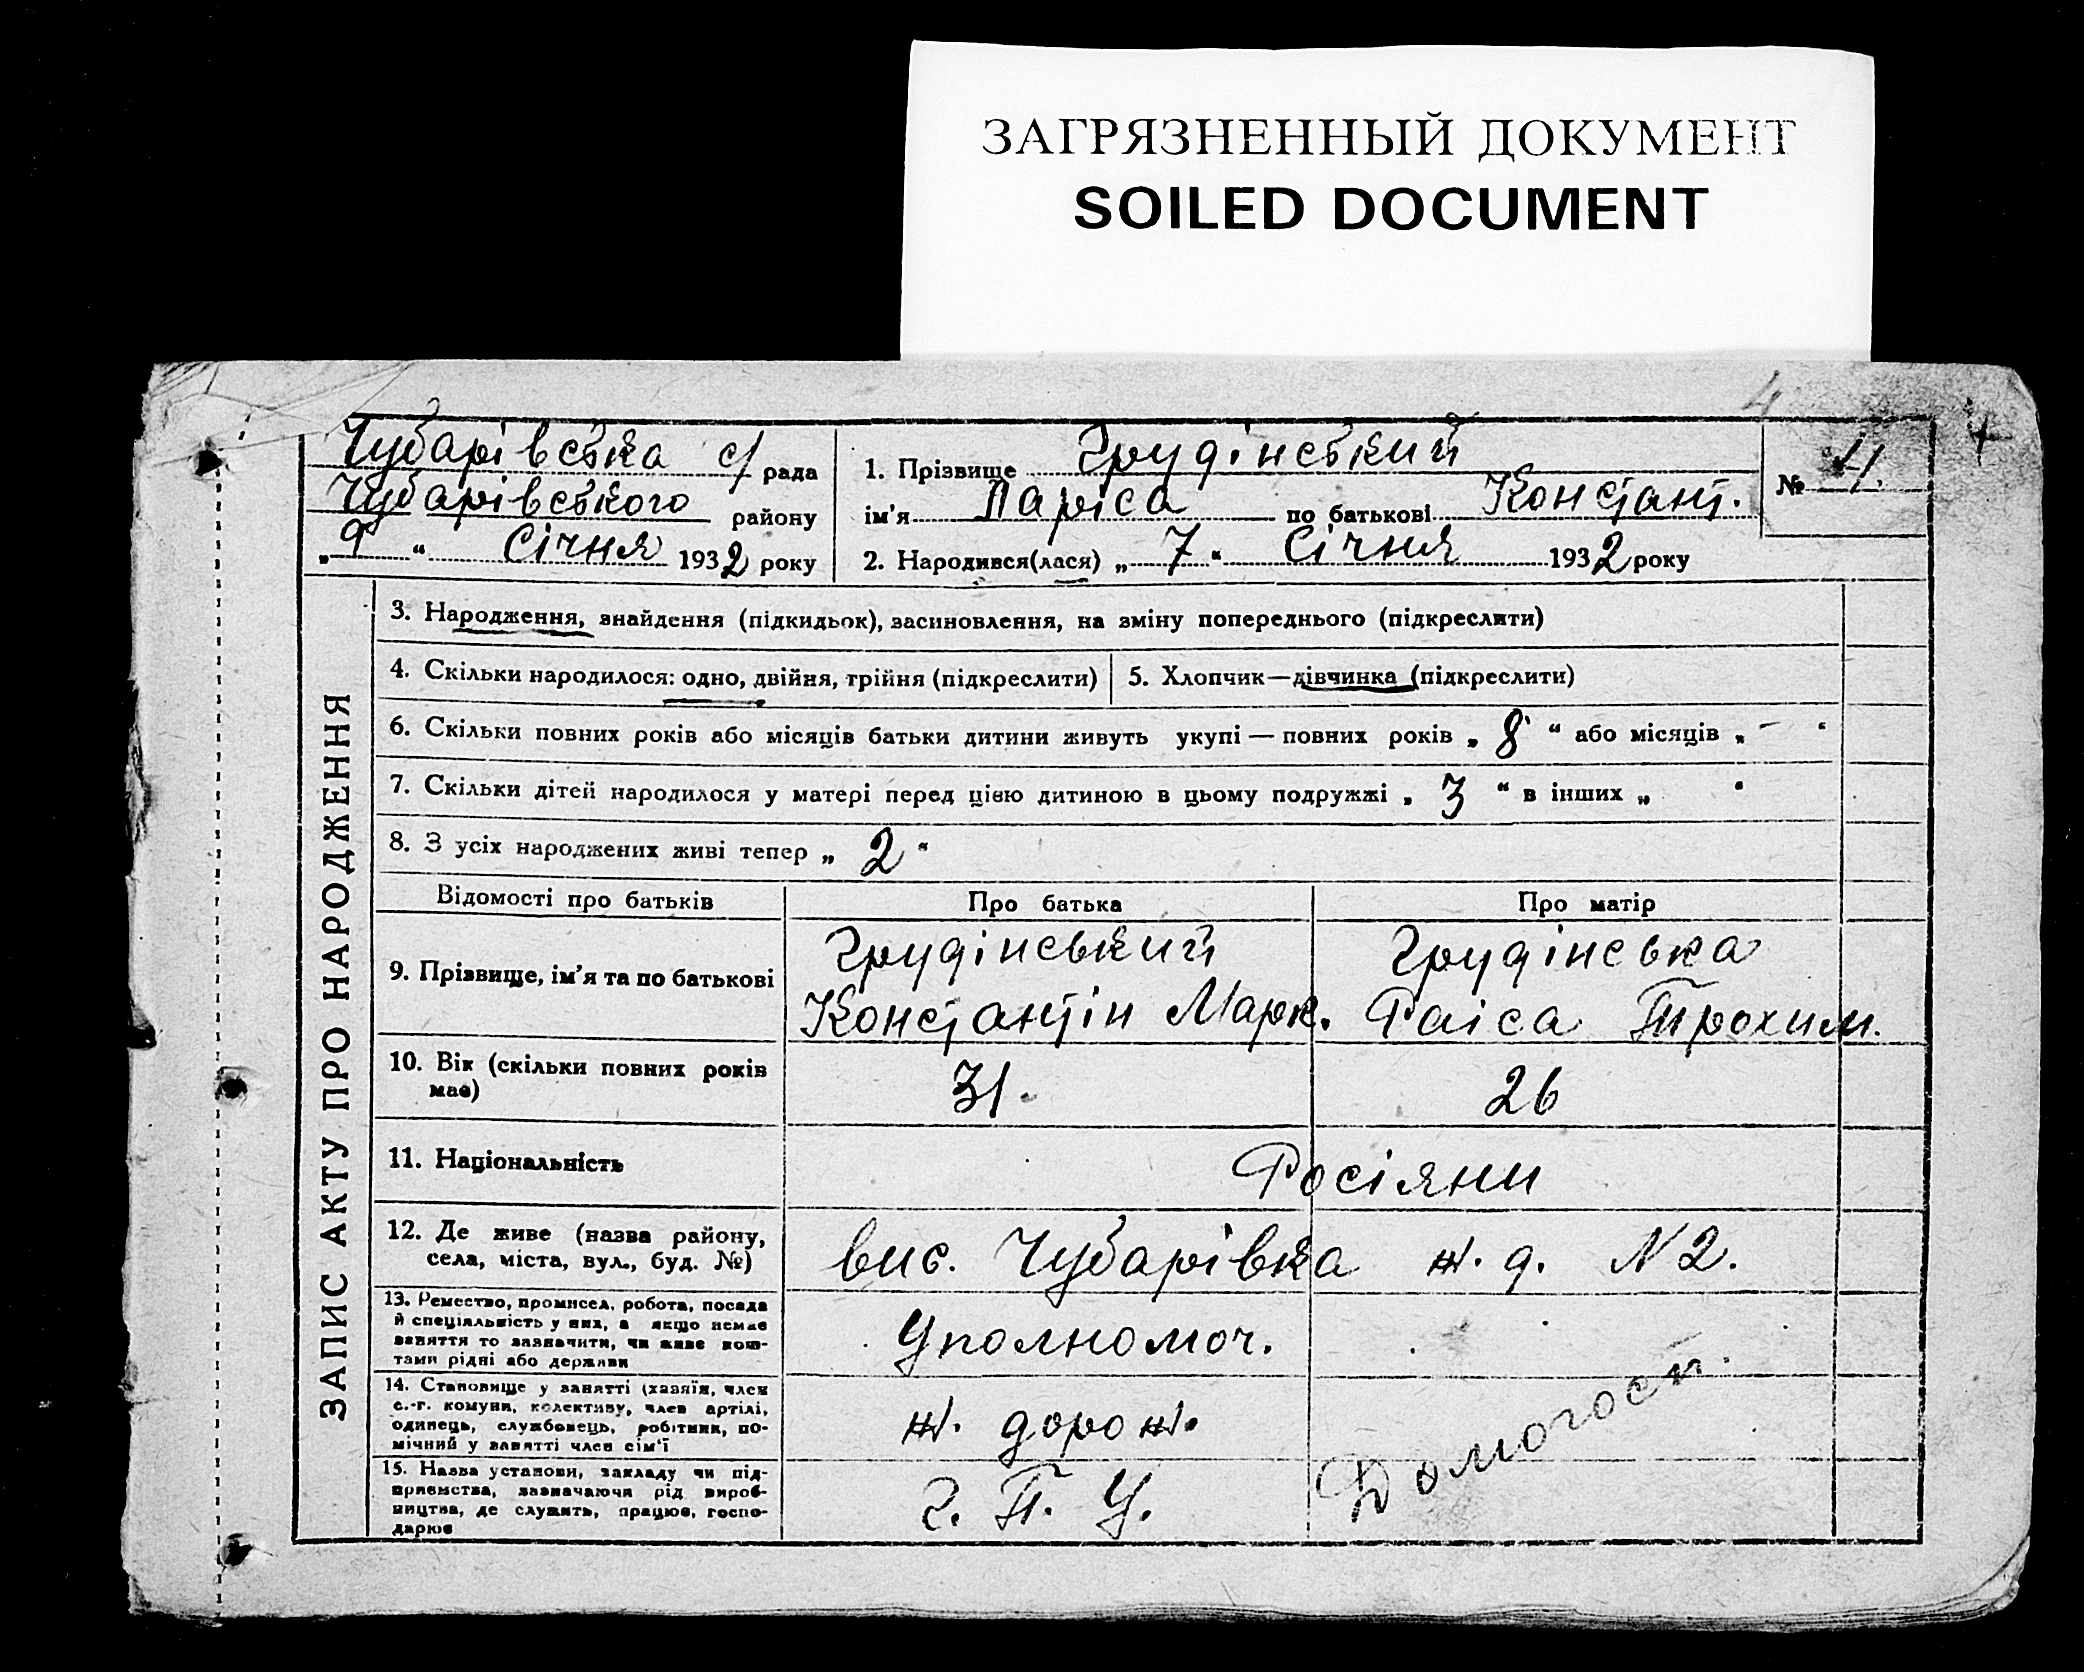 ЗАГРЯЗНЕННЫЙ ДОКУМЕНТ
SOILED DOCUMENT
Чубарівська с/рада
Чубарівського району
„9“ Січня 1932 року
1. Прізвище Грудінський
ім'я Ларіса по батькові Констант.
№ 4.
2. Народився(лася) „7“ Січня 1932 року
ЗАПИС АКТУ ПРО НАРОДЖЕННЯ
3. Народження, знайдення (підкидьок), засиновлення, на зміну попереднього (підкреслити)
4. Скільки народилося: одно, двійня, трійня (підкреслити)
5. Хлопчик—дівчинка (підкреслити)
6. Скільки повних років або місяців батьки дитини живуть укупі — повних років „8“ або місяців „-“
7. Скільки дітей народилося у матері перед цією дитиною в цьому подружжі „3“ в інших „ “
8. З усіх народжених живі тепер „2“
Відомості про батьків Про батька Про матір
9. Прізвище, ім'я та по батькові
Грудінський
Константін Марк.
Грудінська
Раіса Трохим.
10. Вік (скільки повних років
має)
31. 26
11. Національність Росіяни
12. Де живе (назва району,
села, міста, вул., буд. №)
вис. Чубарівка ж. д. N 2.
13. Ремество, промисел, робота, посада
й спеціяльність у них, а якщо немає
заняття то зазначити, чи живе кош-
тами рідні або держави
Уполномоч.
14. Становище у занятті (хазяїн, член
с.-г. комуни, колективу, член артілі,
одинець, службовець, робітник, по-
мічний у занятті член сім'ї
ж. дорож.
15. Назва установи, закладу чи під-
приємства, зазначаючи рід вироб-
ництва, де служить, працює, госпо-
дарює
Г. П. У.
Домогосп.